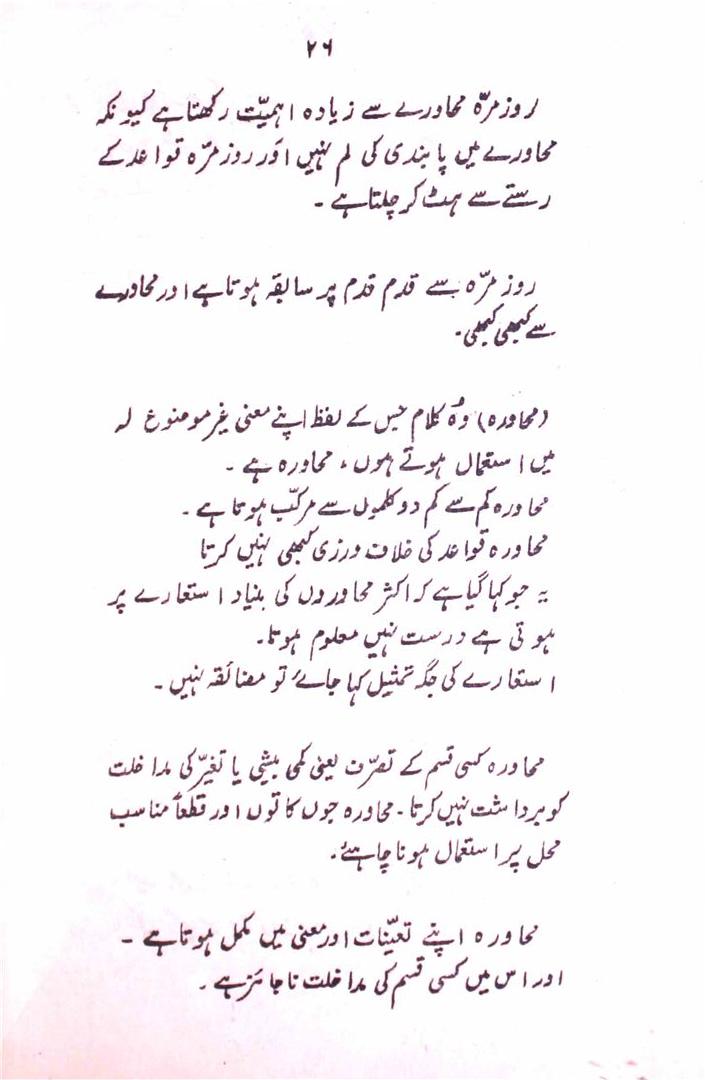 ۲۶
روزمرّہ محاورے سے زیادہ اہمیّت رکھتا ہے کیونکہ
محاورے میں پابندی کی لم نہیں اور روزمرّہ قواعد کے
رستے سے ہٹ کر چلتا ہے ۔
روزمرّہ سے قدم قدم پر سابقہ ہوتا ہے اور محاورے
سے کبھی کبھی۔
(محاورہ) وہ کلام جس کے لفظ اپنے معنی غیر موضوع لہ
میں استعمال ہوتے ہوں، محاورہ ہے ۔
محاورہ کم سے کم دو کلموں سے مرکّب ہوتا ہے ۔
محاورہ قواعد کی خلاف ورزی کبھی نہیں کرتا
یہ جو کہا گیا ہے کہ اکثر محاوروں کی بنیاد استعارے پر
ہوتی ہے درست نہیں معلوم ہوتا۔
استعارے کی جگہ تمثیل کہا جائے تو مضائقہ نہیں ۔
محاورہ کسی قسم کے تصرّف یعنی کمی بیشی یا تغیّر کی مداخلت
کو برداشت نہیں کرتا ۔ محاورہ جوں کا توں اور قطعاً مناسب
محل پر استعمال ہونا چاہئے۔
محاورہ اپنے تعیّنات اور معنی میں مکمل ہوتا ہے ۔
اور اس میں کسی قسم کی مداخلت ناجائز ہے ۔